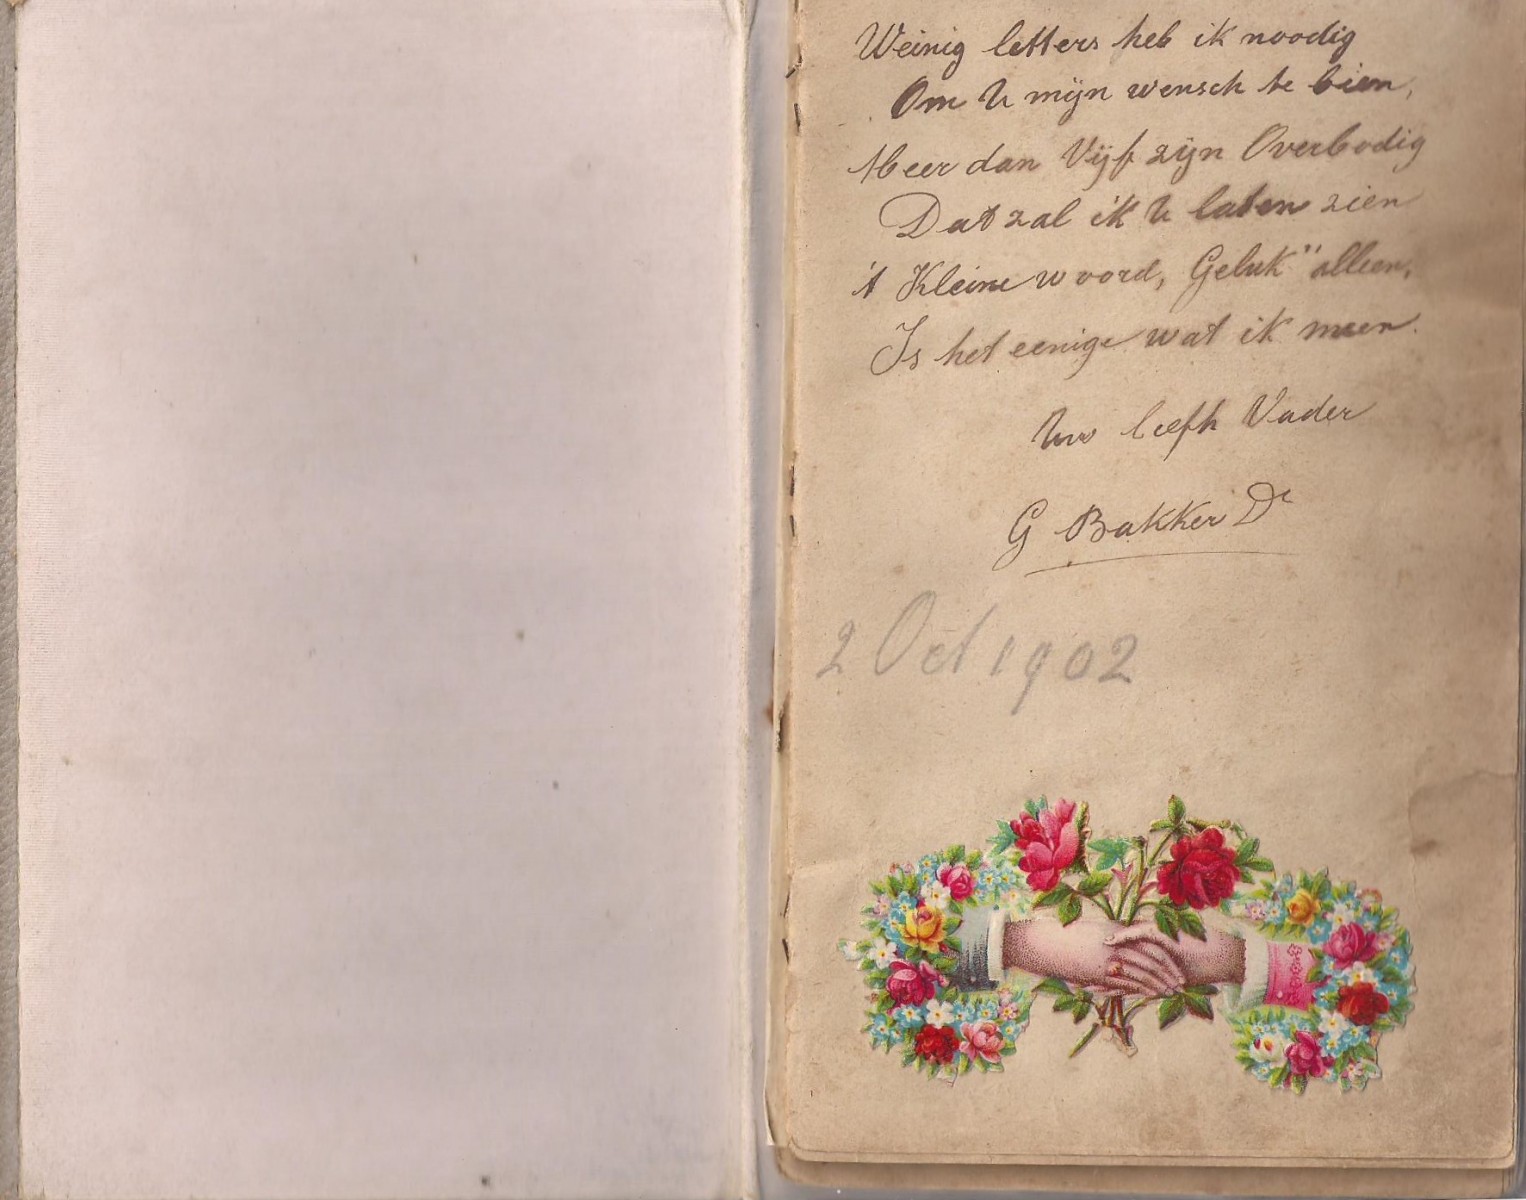 Weinig letters heb ik noodig
Om U mijn wensch te biên,
Meer dan Vijf zijn Overbodig
Dat zal ik U laten zien
't Kleine woord, Geluk" alleen,
Is het eenige wat ik meen.
Uw liefh Vader
G Bakker Dr
2 Oct 1902